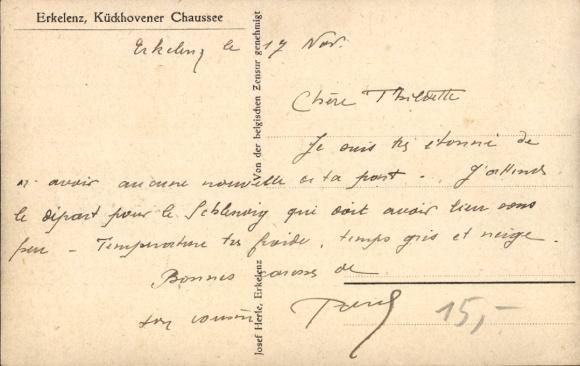 Erkelenz, Kückhovener Chaussee
Erkelenz le 17 Nov.
Chère
Je suis très étonné de
n'avoir aucune nouvelle de ta part. J'attends
le départ pour le Schleswig qui doit avoir lieu sous
peu - Température très froide, temps gris et neige.
Bonnes de
ton cousin
15,-
Von der belgischen Zensur genehmigt
Josef Herle, Erkelenz